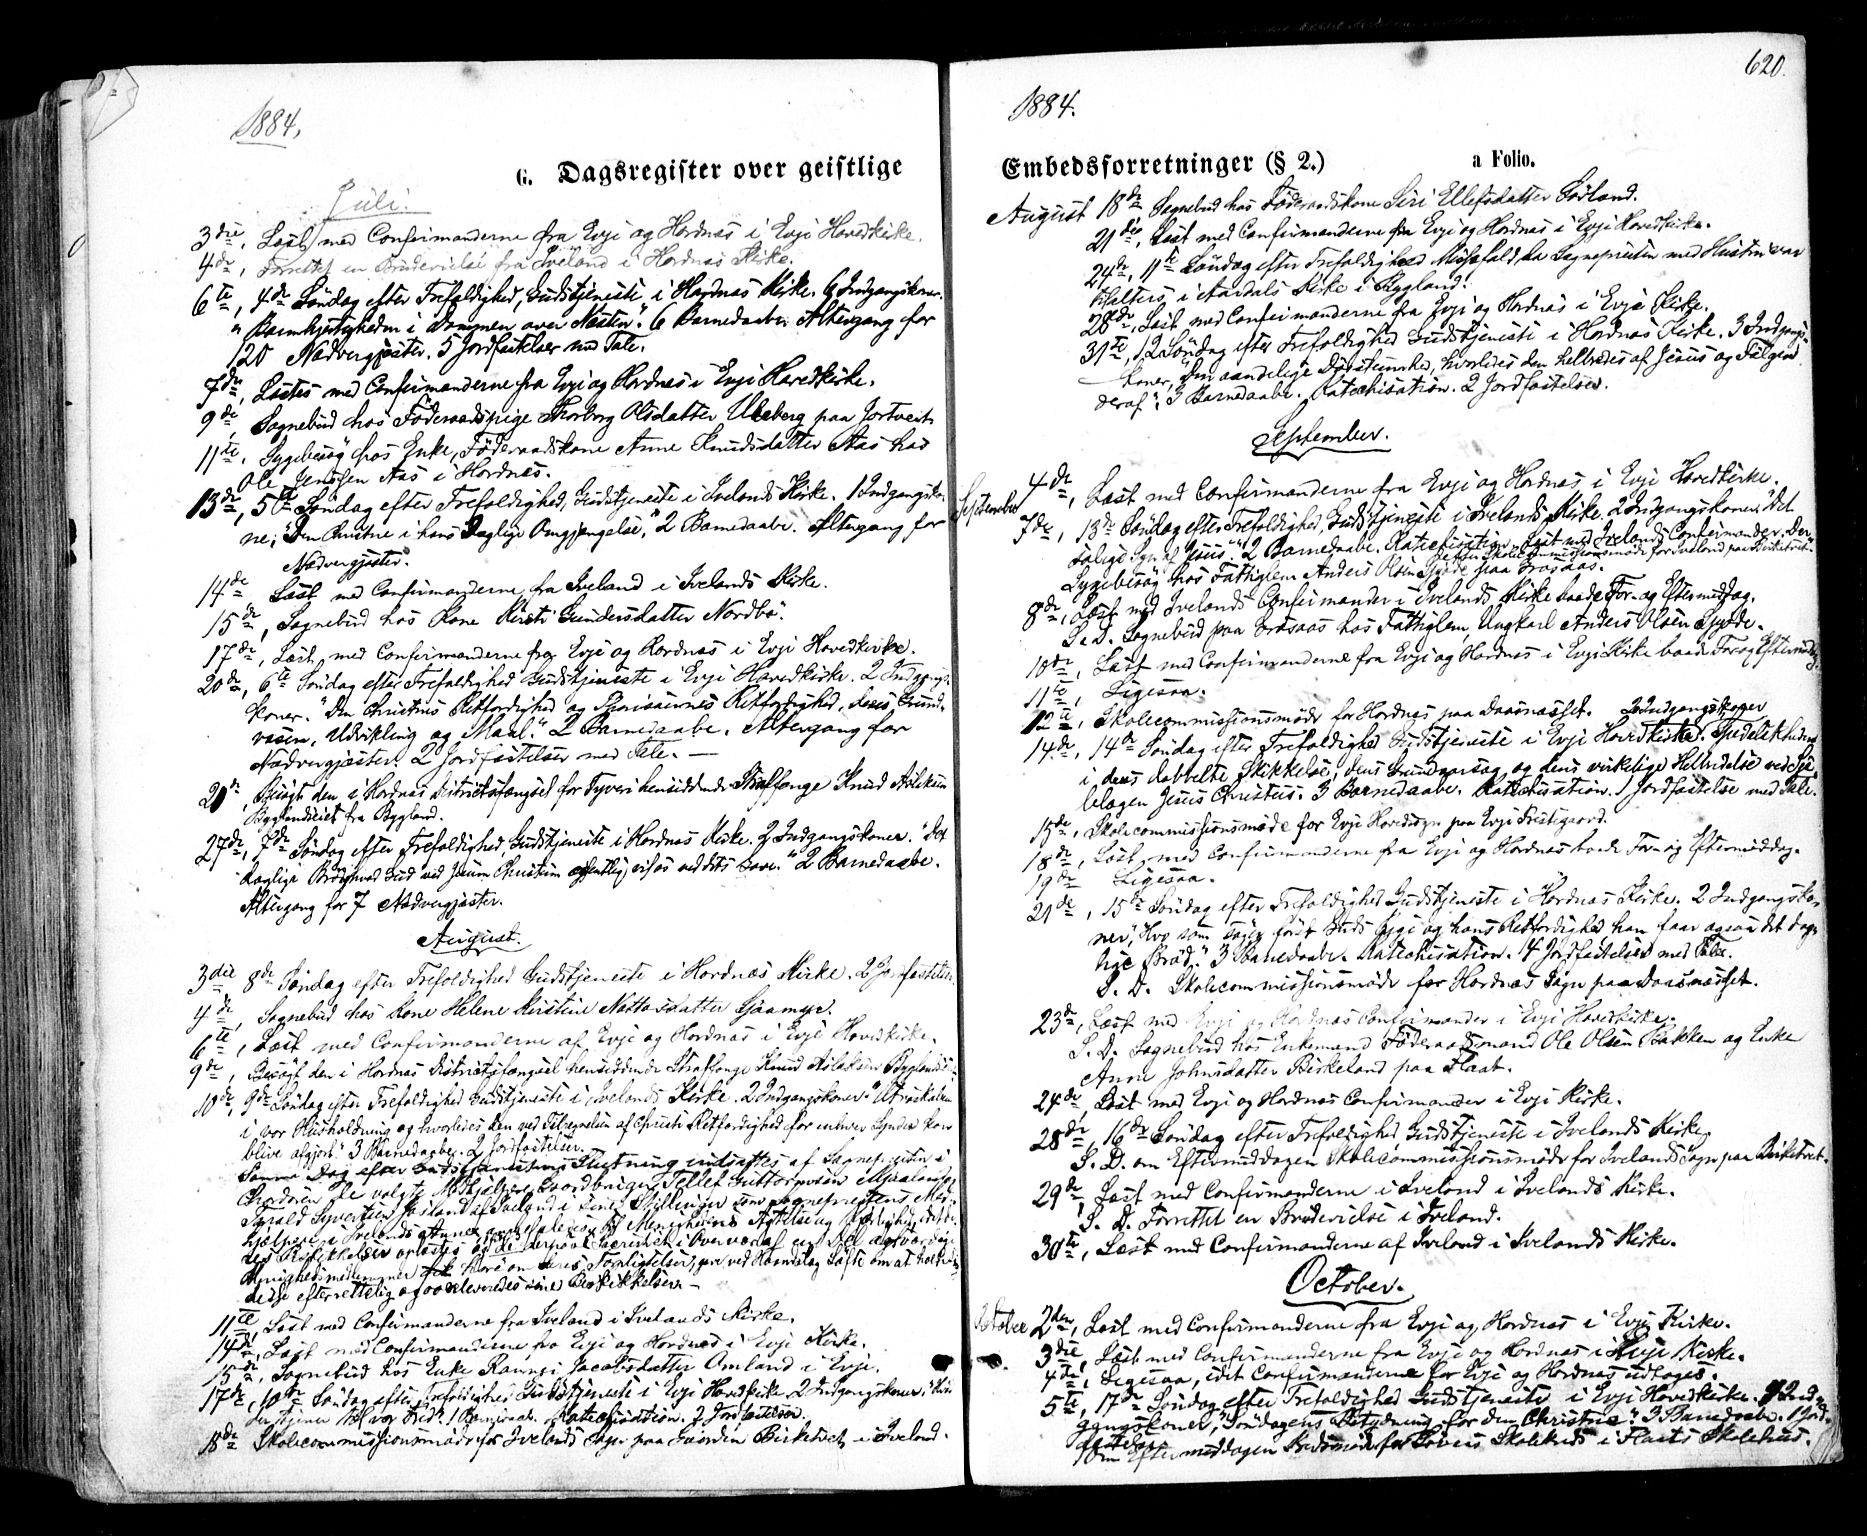 1884.
G. Dagsregister over geistlige
Juli.
3die, Læst med Confirmanderne fra Evje og Hordnæs i Evje Hovedkirke.
4de, Forrettet en Brudevielse fra Iveland i Hordnæs Kirke.
6te, 4de Søndag efter Trefoldighed, Gudstjeneste i Hordnæs Kirke. 6 Indgangskoner.
"Barmhjertigheden i Dommen over Næsten". 6 Barnedaabe. Altergang for
120 Nadvergjæster. 5 Jordfæstelser med Tale.
7de, Læstes med Confirmanderne fra Evje og Hordnæs i Evje Hovedkirke.
9de Sognebud hos Føderaadspige Thorborg Olsdatter Uleberg paa Jortveit.
11te, Sygebesøg hos Enke, Føderaadskone Anne Knudsdatter Aas hos
Ole Jensen Aas i Hordnæs.
13de, 5te Søndag efter Trefoldighed, Gudstjeneste i Ivelands Kirke. 1 Indgangsko-
ne; "Den Christne i hans Daglige Omgjængelse," 2 Barnedaabe. Altergang for
Nadvergjæster.
14de Læst med Confirmanderne fra Iveland i Ivelands Kirke.
15de, Sognebud hos Kone Kersti Gundersdatter Nordbø.
17de, Læst med Confirmanderne fra Evje og Hordnæs i Evje Hovedkirke.
20de, 6te Søndag efter Trefoldighed Gudstjeneste i Evje Hovedkirke. 2 Indgangs-
koner. "Den Christnes Retfærdighed og Pharisæernes Retfærdighed, deres Grund-
væsen, Udvikling og Maal." 2 Barnedaabe. Altergang for
Nadvergjæster. 2 Jordfæstelser med Tale. —
21de, Besøgt den i Hordnæs Distriktsfængsel for Tyveri hensiddende Straffange Knud Aslaksen
Byglandseiet fra Bygland.
27de, 7de Søndag efter Trefoldighed, Gudstjeneste i Hordnæs Kirke. 2 Indgangskoner. "Det
daglige Brød, hvad Gud ved Jesum Christum offentlig vises ved dets Gave." 2 Barnedaabe.
Altergang for 7 Nadvergjæster.
August.
3die 8de Søndag efter Trefoldighed Gudstjeneste i Hordnæs Kirke. 2 Jordfæstelser.
4de, Sognebud hos Kone Helene Kerstine Nottosdatter Gjaamyr.
6te, Læst med Confirmanderne af Evje og Hordnæs i Evje Hovedkirke.
9de, Besøgt den i Hordnæs Distriktsfængsel hensiddende Straffange Knud Aslaksen Byglandsei-
10de, 9de Søndag efter Trefoldighed Gudstjeneste i Ivelands Kirke. 2 Indgangskoner. "Utroskaben
i vor Husholdning og hvorledes den ved Tilregnelsen af Christi Retfærdighed for enhver Synder kan
blive afgjort." 3 Barnedaabe. 2 Jordfæstelser.
Samme Dag efter Gudstjenestens Slutning indsattes af Sognepresten i
Chordøren de valgte Medhjælpere Gaardbruger Tellef Guttormsen
Tarald Syvertsen i Iveland i deres Stillinger som Sognepræstens Med-
hjælpere i Ivelands Annex
11te, Læst med Confirmanderne fra Iveland i Ivelands Kirke.
14de, Læst med Confirmanderne fra Evje og Hordnæs i Evje Kirke.
15de, Sognebud hos Enke Raungi Jacobsdatter Omland i Evje.
17de, 10de Søndag efter Trefoldighed Gudstjeneste i Evje Hovedkirke. 2 Indgangskoner.
tjener til vor Fred". 1 Barnedaab. Katechisation. 2 Jordfæstelser.
18de Skolecommissionsmøde for Ivelands Sogn paa Gaarden Birketveit i Iveland.
620.
1884.
Embedsforretninger (§ 2.) a Folio.
August 18de Sognebud hos Føderaadskone Siri Ellefsdatter Sørland.
21de, Læst med Confirmanderne fra Evje og Hordnæs i Evje Hovedkirke.
24de, 11te Søndag efter Trefoldighed Messefald, da Sognepresten med Hustru var
til Alters i Aardals Kirke i Bygland.
28de, Læst med Confirmanderne fra Evje og Hordnæs i Evje Kirke.
31te, 12 Søndag efter Trefoldighed Gudstjeneste i Hordnæs Kirke. 3 Indgangs-
koner, "Den aandelige Døvstumhed, hvorledes den helbredes af Jesus og Følgen
deraf". 3 Barnedaabe. Katechisation. 2 Jordfæstelser.
September.
September 4de, Læst med Confirmanderne fra Evje og Hordnæs i Evje Hovedkirke.
7de, 13de Søndag efter Trefoldighed, Gudstjeneste i Ivelands Kirke. 2 Indgangskoner. "Det
salige Syn af Jesus." 2 Barnedaabe. Katechisation. Læst med Ivelands Confirmander. Der-
efter Skolecommissionsmøde for Iveland paa Birketveit.
Sygebesøg hos Fattiglem Anders Olsen Gjøde paa Frøsaas.
8de, Læst med Ivelands Confirmander i Ivelands Kirke baade For- og Eftermiddag.
S. D. Sognebud paa Frøsaas hos Fattiglem, Ungkarl Anders Olsen Gjøde.
10de, Læst med Confirmanderne fra Evje og Hordnæs i Evje Kirke baade For og Eftermiddag.
11te, Ligesaa.
12te, Skolecommissionsmøde for Hordnæs paa Daasnæsset. 2 Indgangskoner
14de, 14de Søndag efter Trefoldighed Gudstjeneste i Evje Hovedkirke. Spedalskheden
i dens dobbelte Skikkelse, dens Grundaarsag og dens virkelige Helbredelse ved Sje-
lelægen Jesus Christus. 3 Barnedaabe. Katechisation. 1 Jordfæstelse med Tale.
15de, Skolecommissionsmøde for Evje Hovedsogn paa Evje Prestegaard.
18de, Læst med Confirmanderne fra Evje og Hordnæs baade For- og Eftermiddag.
19de Ligesaa.
21de, 15de Søndag efter Trefoldighed Gudstjeneste i Hordnæs Kirke. 2 Indgangsko-
ner, "Hvo som søger først Guds Rige og hans Retfærdighed han faar ogsaa det dag-
lige Brød." 3 Barnedaabe. Katechisation. 4 Jordfæstelser med Tale.
S. D. Skolecommissionsmøde for Hordnæs Sogn paa Daasnæsset.
23de, Læst med Evje og Hordnæs Confirmander i Evje Hovedkirke.
S. D. Sognebud hos Enkemand Føderaadsmand Ole Olsen Bakken og Enke
Anne Johnsdatter Birkeland paa Flaat.
24de, Læst med Evje og Hordnæs Confirmander i Evje Kirke.
28de, 16de Søndag efter Trefoldighed Gudstjeneste i Ivelands Kirke.
S. D. om Eftermiddagen Skolecommissionsmøde for Ivelands Sogn paa Birketveit.
29de, Læst med Confirmanderne i Iveland i Ivelands Kirke.
S. D. Forrettet en Brudevielse i Iveland.
30te, Læst med Confirmanderne af Iveland i Ivelands Kirke.
October.
October 2den, Læst med Confirmanderne fra Evje og Hordnæs i Evje Kirke.
3die, Læst med Confirmanderne fra Evje og Hordnæs i Evje Kirke.
4de, Ligesaa, idet Confirmanderne for Evje og Hordnæs udtoges.
5te, 17de Søndag efter Trefoldighed Gudstjeneste i Evje Hovedkirke. 9 Ind-
gangskoner, "Søndagens Betydning for den Christne". 3 Barnedaabe. 1 Jord-
fæstelse.
Om Eftermiddagen Kredsmøde for Skolekreds i Flaats Skolehus.